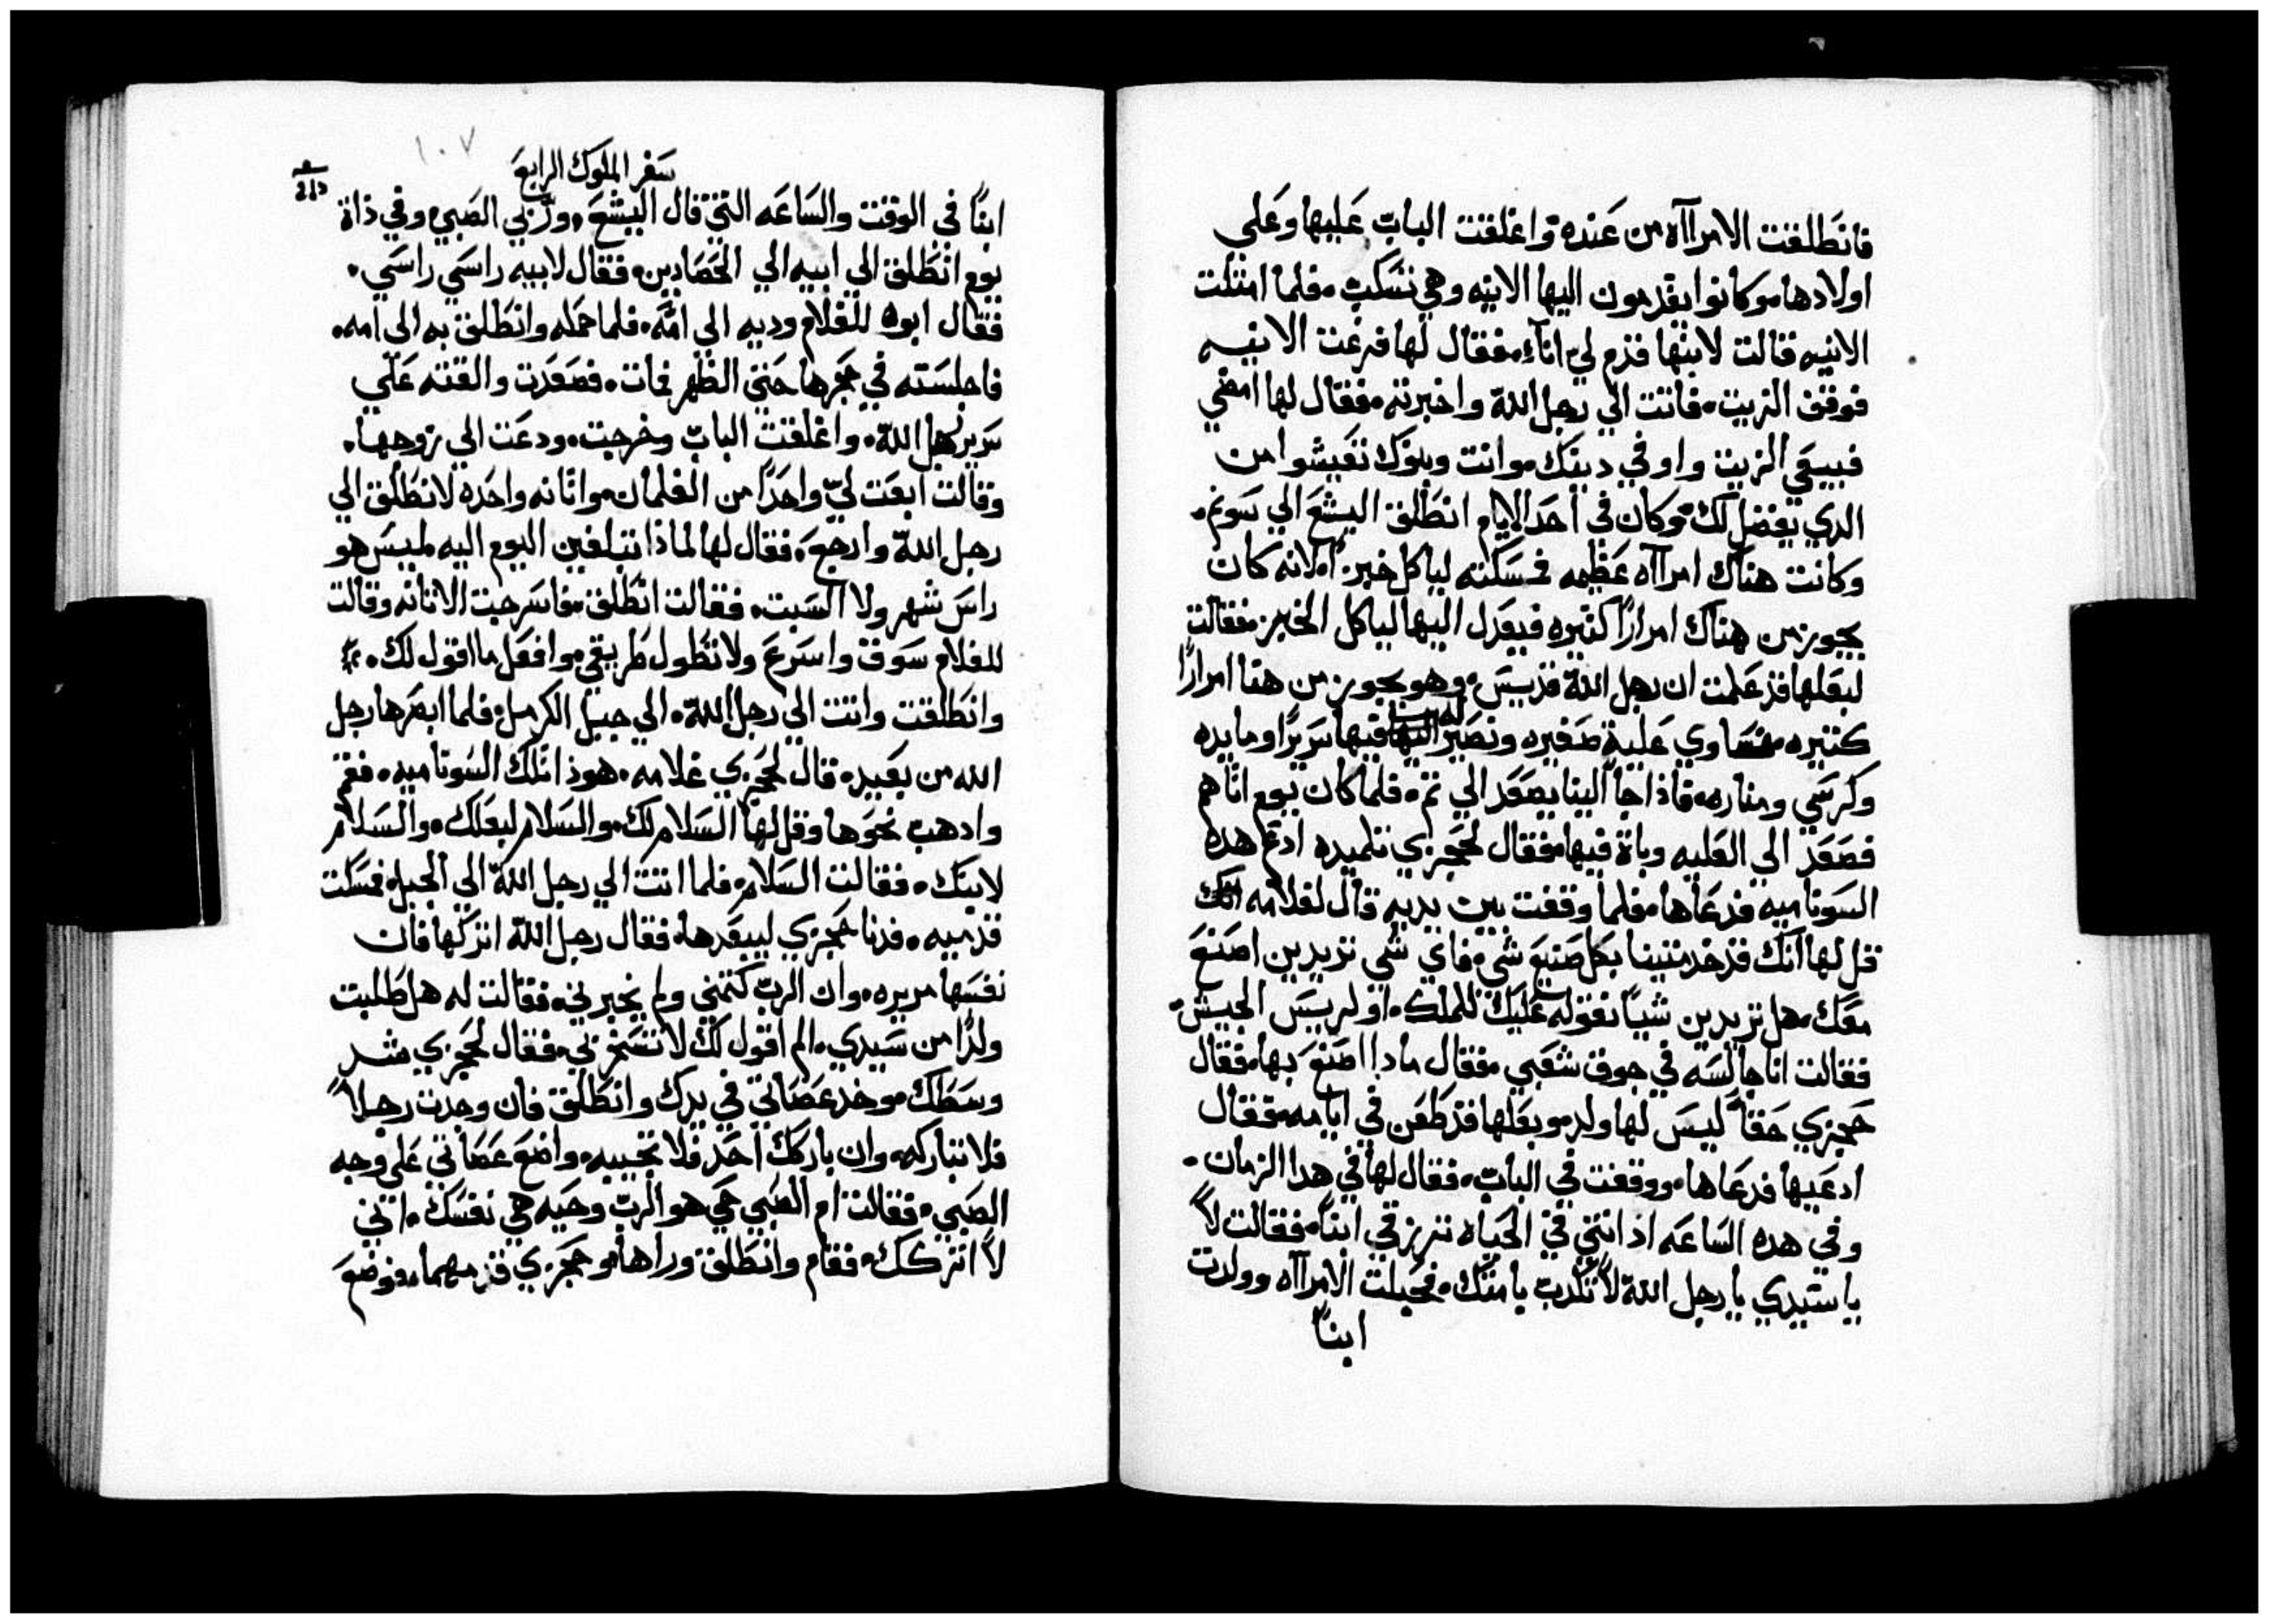 فانطلقت الامرااه من عنده واغلقت الباب عليها وعلي
اولادها وكانوا يقدمون اليها الانيه وهي تسكب فلما امتلت
الانيه قالت لابنها قدم لي اناء فقال لها فرغت الانيه
فوقف الزيت فاتت الي رجل الله واخبرته فقال لها امضي
فبيعي الزيت واوفي دينك وانت وبنوك تعيشوا من
الدي يفضل لك وكان في احد الايام انطلق اليشع الي سونم
وكانت هناك امرااه عظيمه فمسكته لياكل خبز لانه كان
يجوز من هناك امرارًا كتيره فيعدل اليها لياكل الخبز فقالت
لبعلها قد علمت ان رجل الله قديس وهو يجوز من هنا امرارًا
كتيره فنساوي علية صغيره ونصير له فيها سريرًا ومايده
وكرسي ومناره فاذا جا الينا يصعد الي تم فلما كان يوم اتاهم
فصعد الي العليه وباة فيها فقال لحجزي تلميده ادع هده
السونامية فدعاها فلما وقفت بين يديه قال لغلامه
قل لها انك قد خدمتينا بكل صنيع شي فاي شي تريدين اصنع
معك هل تريدين شيا نقوله عليك للملك او لرييس الجيش
فقالت انا جالسه في جوف شعبي فقال مادا اصنع بها فقال
حجزي حقا ليس لها ولد وبعلها قد طعن في ايامه فقال
ادعيها فدعاها ووقفت في الباب فقال لها في هدا الزمان
وفي هده الساعه اد انتي في الحياه تررزقي ابنا فقالت لا
يا سيدي يا رجل الله لا تكدب يامتك فحبلت الامرااه وولدت
ابنا
سفر الملوك الرابع
١٠٧
ابنا في الوقت والساعه التي قال اليشع وربي الصبي وفي ذاة
يوم انطلق الي ابيه الي الحصادين فقال لابيه راسي راسي
فقال ابوه للغلام وديه الي امه فلما حمله وانطلق به الي امه
فاجلسته في حجرها حتي الظهر فمات فصعدت والقته علي
سرير رجل الله واغلقت الباب وخرجت ودعت الي زوجها
وقالت ابعت لي واحدًا من الغلمان واتانه واحده لانطلق الي
رجل الله وارجع فقال لها لماذا تنطلقين اليوم اليه ليس هو
راس شهر ولا السبت فقالت انطلق فاسرجت الاتانه وقالت
للغلام سوق واسرع ولا تطول طريقي وافعل ما اقول لك
وانطلقت واتت الي رجل الله الي جبل الكرمل فلما ابصرها رجل
الله من بعيد قال لحجزي غلامه هوذا تلك السوناميه فقم
وادهب نحوها وقل لها السلام لك والسلام لبعلك والسلام
لابنك فقالت السلام فلما اتت الي رجل الله الي الجبل فمسكت
قدميه فدنا حجزي ليبعدها فقال رجل الله اتركها فان
نفسها مريره وان الرب كتمني ولم يخبرني فقالت له هل طلبت
ولدًا من سيدي الم اقول لك لا تسخر بي فقال لحجزي شد
وسطك وخد عصاتي في يدك وانطلق فان وجدت رجلا
فلا تباركه وان باركك احد فلا تجيبه واضع عصاتي علي وجه
الصبي فقالت ام الصبي حي هو الرب وحيه هي نفسك انني
لا اتركك فقام وانطلق وراها وحجزي قدمهما فوضع